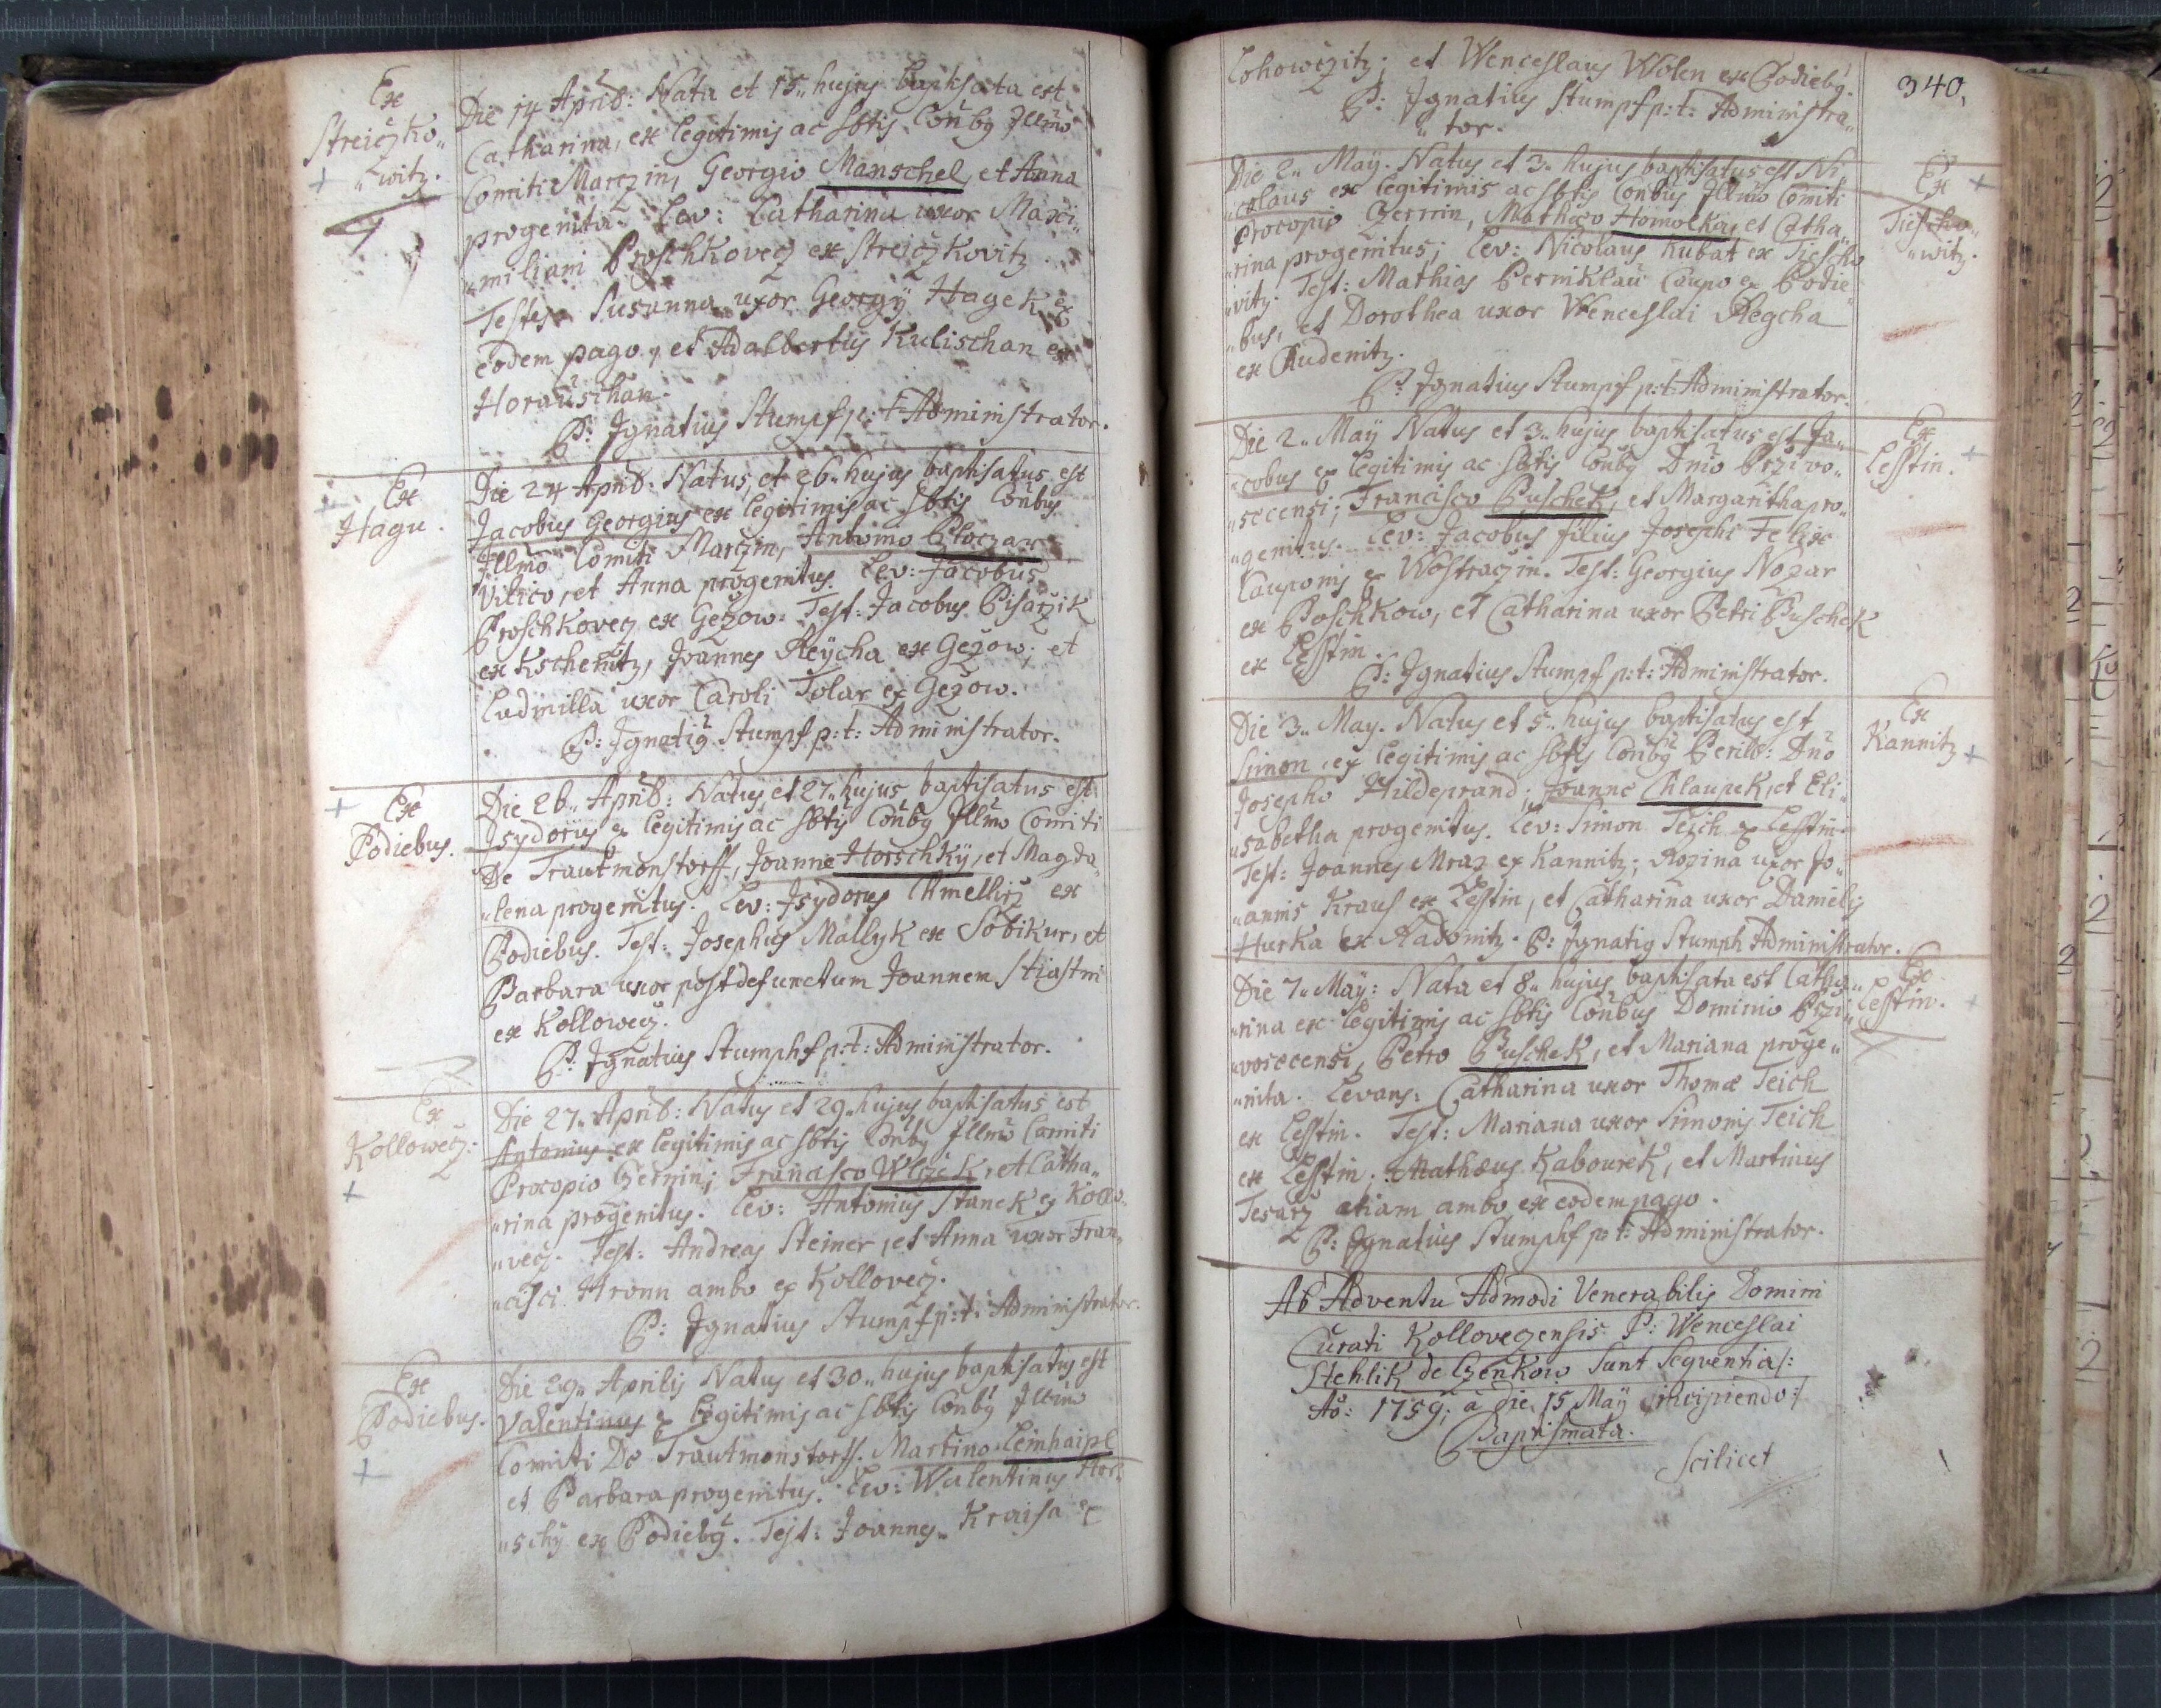 Ex
Streiczko„
„witz.
Die 14 April: Nata et 15 hujus baptisata est
Catharina, ex legitimis ac sbtis Conbg Illmo
Comiti Marczin, Georgio Manschel, et Anna
progenita. Lev: Catharina uxor Maxi„
„miliani Proschkovecz ex Streiczkovitz.
Testes Susanna uxor Georgÿ Hagek ex
eodem pago, et Adalbertus Kulischan ex
Horauschan.
P: Ignatius Stumpf p: t: Administrator.
Ex
Hagu.
Die 24 April: Natus, et 26 hujus baptisatus est
Jacobus Georgius ex legitimis ac sbtis Conbus
Illmo Comiti Marczin, Antonio Ploczar
Vilico, et Anna progenitus. Lev: Jacobus
Proschkovecz ex Gezow. Test: Jacobus Pisarzik
ex Kschenitz, Joannes Reÿcha ex Gezow; et
Ludmilla uxor Caroli Tolar ex Gezow.
P: Ignatig Stumpf p: t: Administrator.
Ex
Podiebus.
Die 26„ April: Natus et 27„ hujus baptisatus est
Isydorius ex legitimis ac sbtis Conbg Illmo Comiti
De Trautmonstorff, Joanne Horschkÿ, et Magda„
„lena progenitus. Lev: Isydorus ex
Podiebus. Test: Josephus Mallyk ex Sobikur, et
Barbara uxor post defunctum Joannem Stiastni
ex Kollowecz.
P: Ignatius Stumphf p: t: Administrator.
Ex
Kollowecz:
Die 27„ April: Natus et 29„ hujus baptisatus est
Antonius ex legitimis ac sbtis Conbg Illmo Comiti
Procopio Czernin; Francisco Wlczek, et Catha„
„rina progenitus. Lev: Antonius Stanek ex Kollo„
„vecz. Test: Andreas Steiner, et Anna uxor Fran„
„cisci Hronn ambo ex Kollovecz.
P: Ignatius Stumpf p: t: Administrator.
Ex
Podiebus.
Die 29„ Aprilis Natus et 30„ hujus baptisatus est
Valentinus ex legitimis ac sbtis Conbg Illmo
Comiti De Trautmonstorff. Martino Leinhaipl
et Barbara progenitus. Lev: Walentinus Hor„
„schÿ ex Podiebg. Test: Joannes Kraisa ex
340,
Lohowczitz; et Wenceslaus Wolen ex Podiebg.
P: Ignatius Stumpf p: t: Administra„
„tor.
Die 2„ Maÿ. Natus et 3„ hujus baptisatus est Ni„
„colaus ex legitimis ac sbtis Conbus Illmo Comiti
Procopio Czernin, Mathaeo Homolka, et Catha„
„rina progenitus; Lev: Nicolaus Kubat ex Tiescho
„vitz. Test: Mathias Perniklau Caupo ex Podie„
„bus, et Dorothea uxor Wenceslai Regcha
ex Chudenitz.
P: Ignatius Stumpf p: t: Administrator.
Ex
Tiescho„
„witz.
Die 2„ Maÿ Natus et 3„ hujus baptisatus est Ja„
„cobus ex legitimis ac sbtis Conbg Dnio Przivo„
„secensi; Francisco Puschek, et Margaritha pro„
„genitus. Lev: Jacobus filius Josephi Felix
Cauponis ex Wostraczin. Test: Georgius Nozar
ex Poschkow, et Catharina uxor Petri Puschek
ex Lesstin.
P: Ignatius Stumpf p: t: Administrator.
Ex
Lesstin.
Die 3„ May. Natus et 5„ hujus baptisatus est
Simon, ex legitimis ac sbtis Conbg Perill: Dno
Josepho Hildeprand; Joanne Chlaupek, et Eli„
„sabetha progenitus. Lev: Simon Teich ex Lesstin.
Test: Joannes Mraz ex Kannitz; Rozina uxor Jo„
„annis Kraus ex Lesstin, et Catharina uxor Danielis
Hurka ex Radonitz. P: Ignatig Stumph Administrator.
Ex
Kannitz
Die 7„ Maÿ: Nata et 8„ hujus baptisata est Catha„
„rina ex legitimis ac sbtis Conbus Dominio Przi„
„vosecensi, Petro Puschek, et Mariana proge„
„nita. Levans: Catharina uxor Thomæ Teich
ex Lesstin. Test: Mariana uxor Simonis Teich
ex Lesstin; Mathæus Kabourek, et Martinus
Tesarz etiam ambo ex eodem pago.
P: Ignatius Stumphf p: t: Administrator.
Ex
Lesstin.
Ab Adventu Admodi Venerabilis Domini
Curati Kollovezensis P: Wenceslai
Stehlik de Czenkow Sunt Seqventia /:
Ao: 1759; a Die 15 Maÿ incipiendo :/
Baptismata.
Scilicet